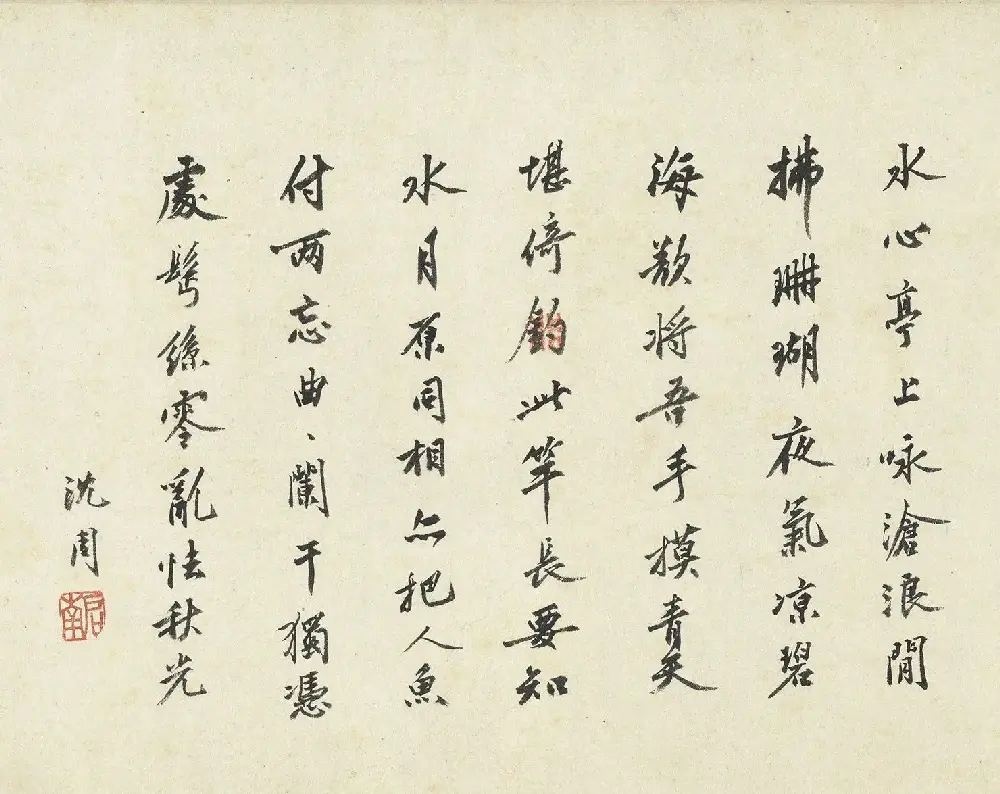 水心亭上咏滄浪閒
拂珊瑚夜氣凉碧
海歘将吾手摸青天
堪倚釣此竿長要知
水月原同相亦把人魚
付两忘曲、闌干獨憑
處鬂絲零亂怯秋光
沈周
啟南